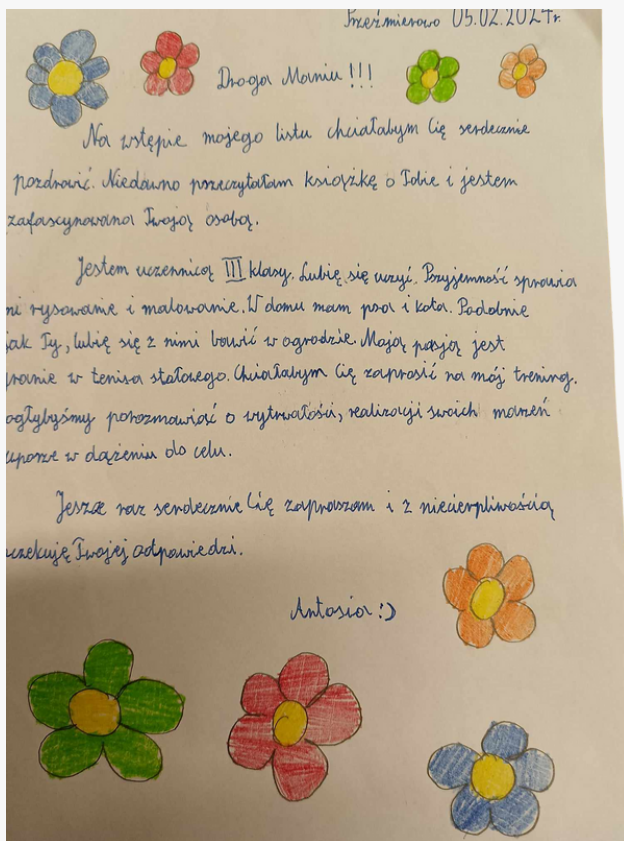 Przeźmierowo 05.02.2024r.
Droga Maniu!!!
Na wstępie mojego listu chciałabym Cię serdecznie
pozdrowić. Niedawno przeczytałam książkę o Tobie i jestem
zafascynowana Twoją osobą.
Jestem uczennicą III klasy. Lubię się uczyć. Przyjemność sprawia
mi rysowanie i malowanie. W domu mam psa i kota. Podobnie
jak Ty, lubię się z nimi bawić w ogrodzie. Moją pasją jest
granie w tenisa stołowego. Chciałabym Cię zaprosić na mój trening.
ogłybyśmy porozmawiać o wytrwałości, realizacji swoich marzeń
uporze w dążeniu do celu.
Jeszcze raz serdecznie Cię zapraszam i z niecierpliwością
oczekuję Twojej odpowiedzi.
Antosia :)